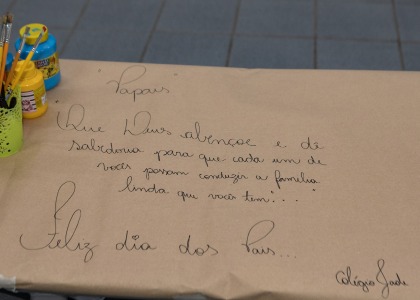 "Papais"
"Que Deus abençoe e dê
sabedoria para que cada um de
vocês possam conduzir a família
linda que vocês tem..."
Feliz dia dos Pais...
Colégio Jads